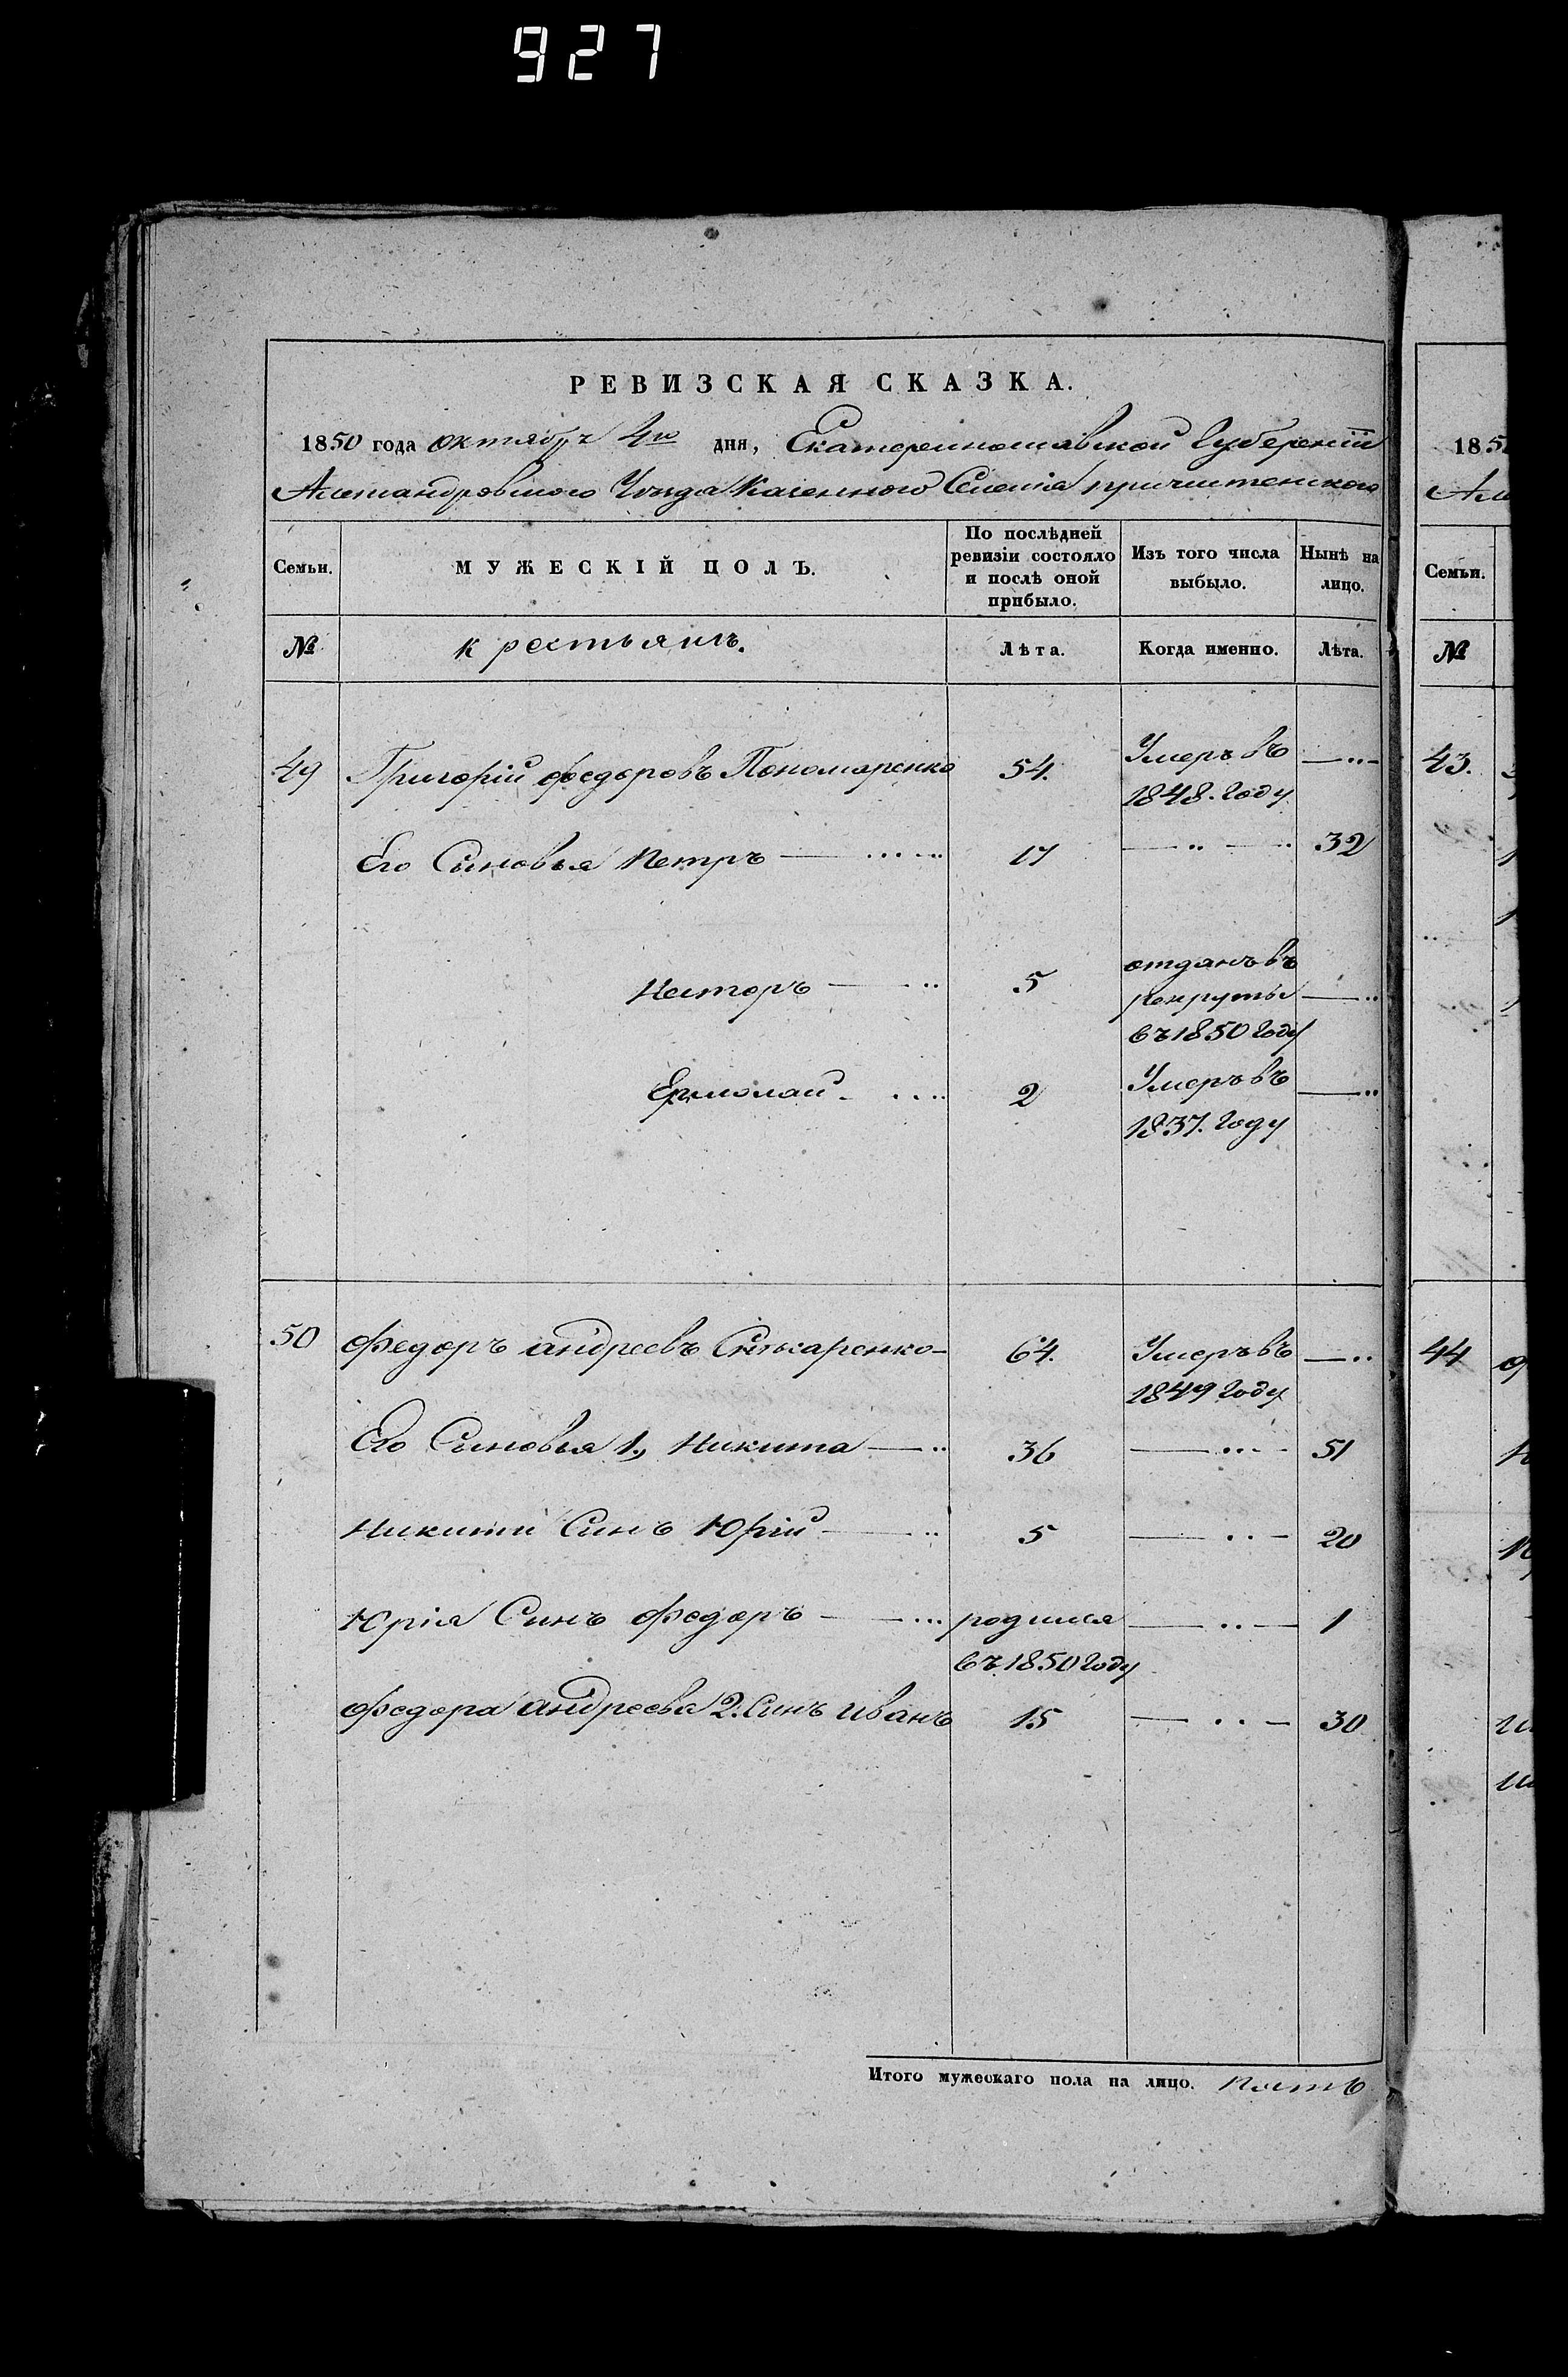 927
РЕВИЗСКАЯ СКАЗКА.
1850 года октября 4го дня, Екатеринославской Губернiи
Александровского Уезда Казенного Селенiя пречистенского
Семьи. МУЖЕСКІЙ ПОЛЪ. По послѣдней ревизіи состояло и послѣ оной прибыло. Изъ того числа выбыло. Нынѣ на лицо.
№ крестьянъ. Лѣта. Когда именно. Лѣта.
49 Григорiй федоровъ Пономаренко 54. Умеръ въ 1848. году
Его Сыновья Петръ 17 32
Несторъ 5 отданъ въ рекруты въ 1850 году
Ермолай 2 Умеръ въ 1837. году
50 федоръ андреевъ 64. Умеръ въ 1849 году
Его Сыновья 1, Никита 36 51
Никиты Синъ Юрiй 5 20
Юрiя Синъ федоръ родился въ 1850 году 1
федора андреева 2. Синъ иванъ 15 30
Итого мужескаго пола на лицо. пять
185
Семьи.
№
43.
44